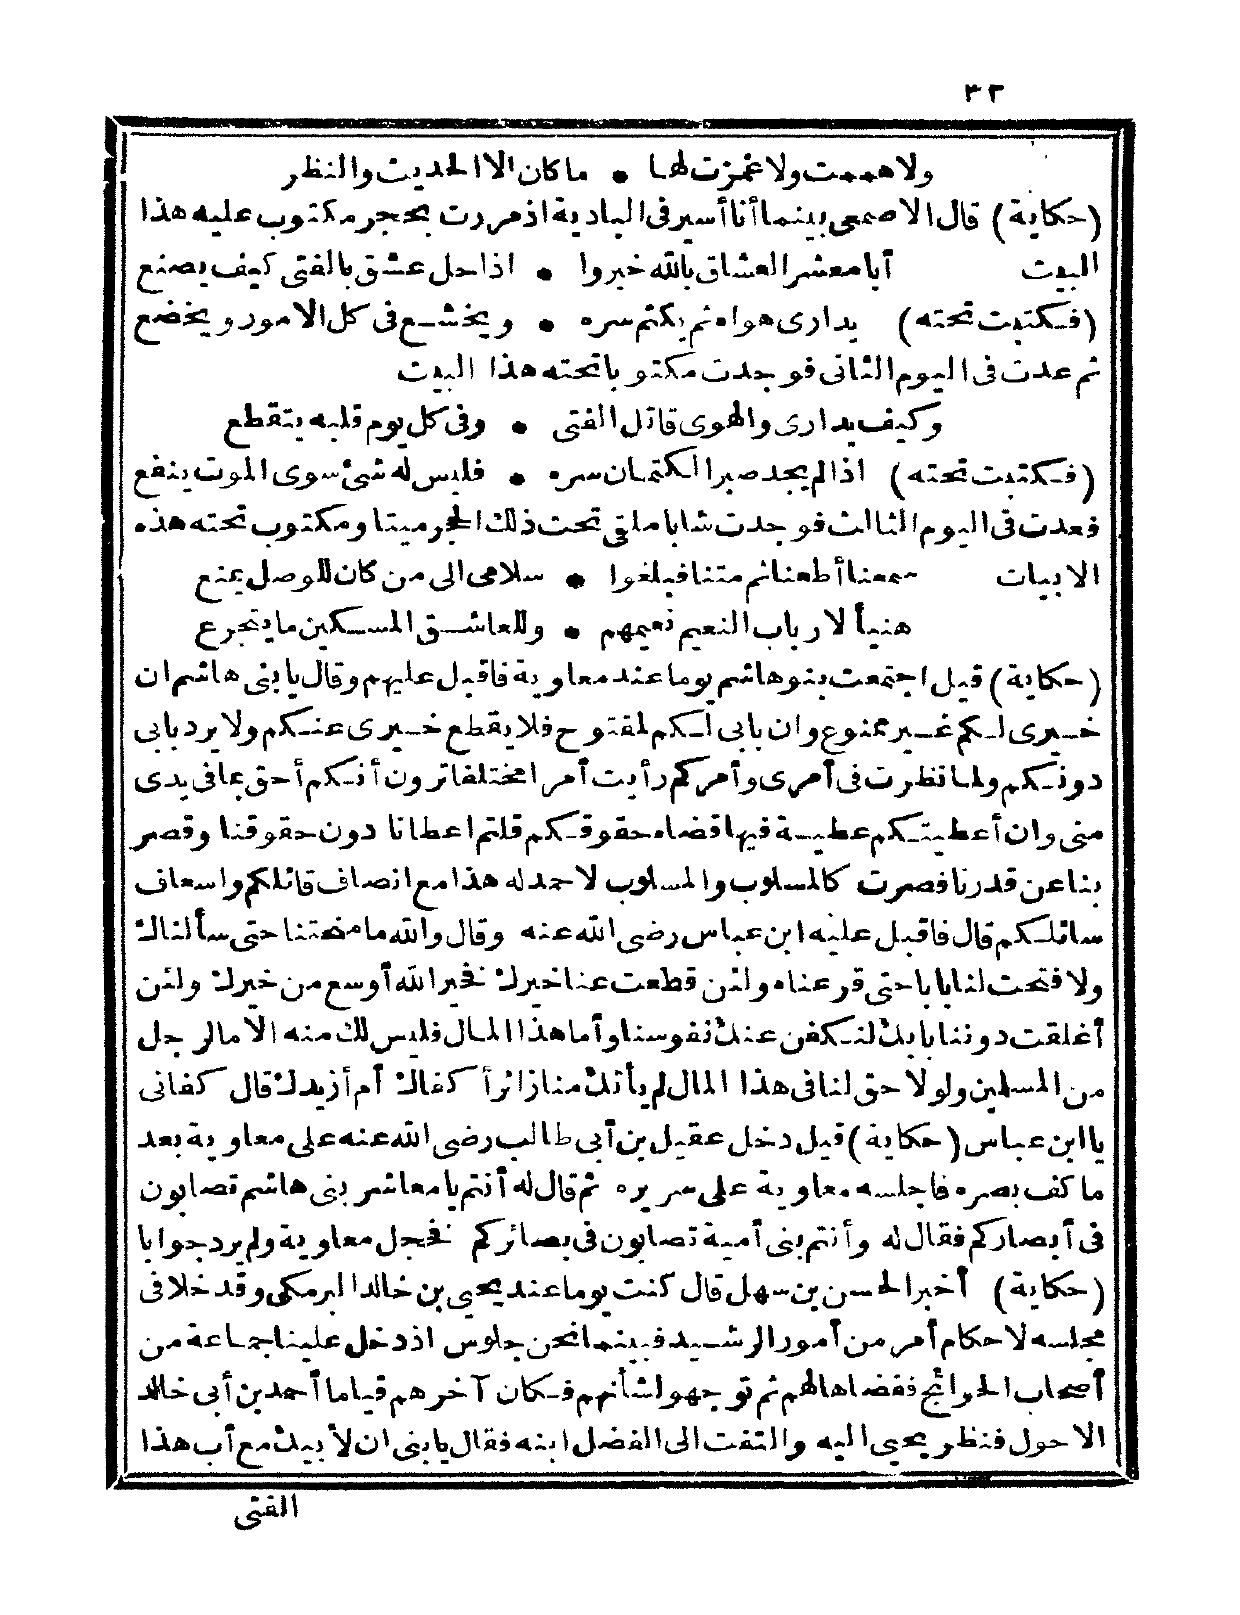 ٣٢
ولا هممت ولا غمزت لها • ما كان الا الحديث والنظر
(حكاية) قال الاصمعى بينما أنا أسير فى البادية اذ مررت بحجر مكتوب عليه هذا
البيت أيا معشر العشاق بالله خبروا • اذا حل عشق بالفتى كيف يصنع
(فكتبت تحته) يدارى هواه ثم يكتم سره • ويخشع فى كل الامور ويخضع
ثم عدت فى اليوم الثانى فوجدت مكتوبا تحته هذا البيت
وكيف يدارى والهوى قاتل الفتى • وفى كل يوم قلبه يتقطع
(فكتبت تحته) اذا لم يجد صبرا لكتمان سره • فليس له شئ سوى الموت ينفع
فعدت فى اليوم الثالث فوجدت شابا ملقى تحت ذلك الحجر ميتا ومكتوب تحته هذه
الابيات سمعنا أطعنا ثم متنا فبلغوا • سلامى الى من كان للوصل يمنع
هنيأ لارباب النعيم نعيمهم • وللعاشق المسكين ما يتجرع
(حكاية) قيل اجتمعت بنو هاشم يوما عند معاوية فاقبل عليهم وقال يا بنى هاشم ان
خيرى لكم غير ممنوع وان بابى لكم لمفتوح فلا يقطع خيرى عنكم ولا يرد بابى
دونكم ولما نظرت فى أمرى وأمركم رأيت أمرا مختلفا ترون أنكم أحق بما فى يدى
منى وان أعطيتكم عطية فيها قضاء حقوقكم قلتم اعطانا دون حقوقنا وقصر
بنا عن قدرنا فصرت كالمسلوب والمسلوب لا حمد له هذا مع انصاف قائلكم واسعاف
سائلكم قال فاقبل عليه ابن عباس رضى الله عنه وقال والله ما منحتنا حتى سألناك
ولا فتحت لنا بابا حتى قرعناه ولئن قطعت عنا خيرك فخير الله أوسع من خيرك ولئن
أغلقت دوننا بابك لنكفن عنك نفوسنا وأما هذا المال فليس لك منه الا مالرجل
من المسلمين ولولا حق لنا فى هذا المال لم يأتك منا زائر أ كفاك أم أزيدك قال كفانى
يا ابن عباس (حكاية) قيل دخل عقيل بن أبى طالب رضى الله عنه على معاوية بعد
ما كف بصره فاجلسه معاوية على سريره ثم قال له أنتم يا معاشر بنى هاشم تصابون
فى أبصاركم فقال له وأنتم بنى أمية تصابون فى بصائركم فخجل معاوية ولم يرد جوابا
(حكاية) أخبر الحسن بن سهل قال كنت يوما عند يحيى بن خالد البرمكى وقد خلا فى
مجلسه لاحكام أمر من أمور الرشيد فبينما نحن جلوس اذ دخل علينا جماعة من
أصحاب الحوائج فقضاها لهم ثم توجهوا لشأنهم فكان آخرهم قياما أحمد بن أبى خالد
الاحول فنظر يحيى اليه والتفت الى الفضل ابنه فقال يا بنى ان لأبيك مع أب هذا
الفتى